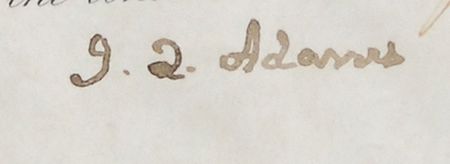 J. Q. Adams